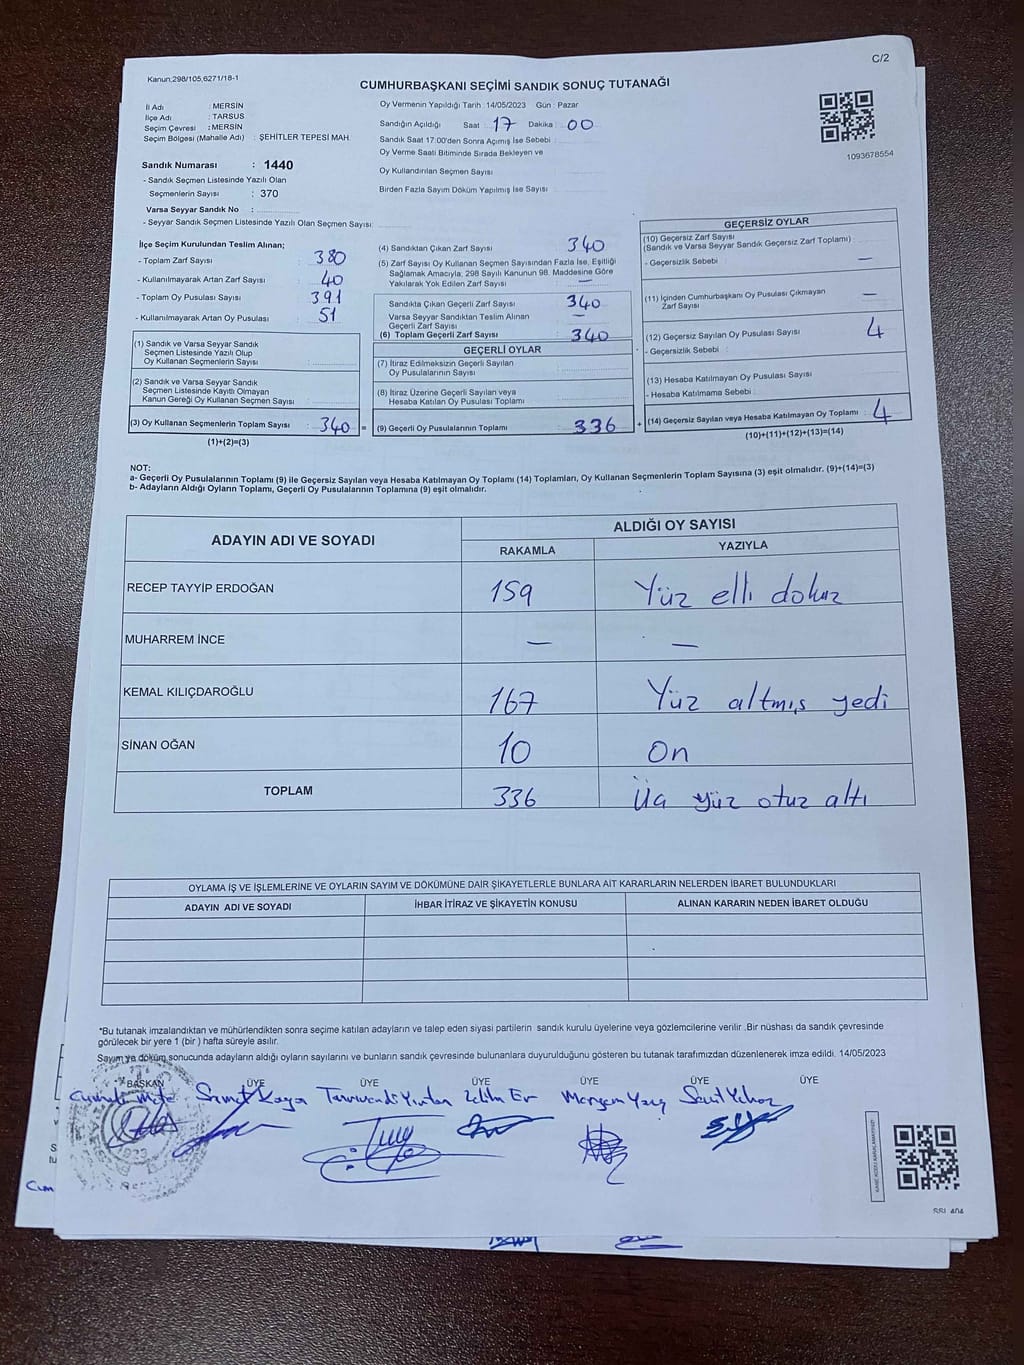 C/2
Kanun;298/105,6271/18-1
CUMHURBAŞKANI SEÇİMİ SANDIK SONUÇ TUTANAĞI
İl Adı : MERSİN
İlçe Adı : TARSUS
Seçim Çevresi : MERSİN
Seçim Bölgesi (Mahalle Adı) : ŞEHİTLER TEPESİ MAH.
Sandık Numarası : 1440
- Sandık Seçmen Listesinde Yazılı Olan
Seçmenlerin Sayısı : 370
Varsa Seyyar Sandık No :
- Seyyar Sandık Seçmen Listesinde Yazılı Olan Seçmen Sayısı:
Oy Vermenin Yapıldığı Tarih : 14/05/2023 Gün : Pazar
Sandığın Açıldığı Saat : 17 Dakika : 00
Sandık Saat 17:00'den Sonra Açımış İse Sebebi :
Oy Verme Saati Bitiminde Sırada Bekleyen ve
Oy Kullandırılan Seçmen Sayısı
Birden Fazla Sayım Döküm Yapılmış İse Sayısı
1093678554
İlçe Seçim Kurulundan Teslim Alınan;
- Toplam Zarf Sayısı : 380
- Kullanılmayarak Artan Zarf Sayısı : 40
- Toplam Oy Pusulası Sayısı : 391
- Kullanılmayarak Artan Oy Pusulası : 51
(1) Sandık ve Varsa Seyyar Sandık
Seçmen Listesinde Yazılı Olup
Oy Kullanan Seçmenlerin Sayısı :
(2) Sandık ve Varsa Seyyar Sandık
Seçmen Listesinde Kayıtlı Olmayan
Kanun Gereği Oy Kullanan Seçmen Sayısı :
(3) Oy Kullanan Seçmenlerin Toplam Sayısı : 340 =
(1)+(2)=(3)
(4) Sandıktan Çıkan Zarf Sayısı : 340
(5) Zarf Sayısı Oy Kullanan Seçmen Sayısından Fazla İse, Eşitliği
Sağlamak Amacıyla, 298 Sayılı Kanunun 98. Maddesine Göre
Yakılarak Yok Edilen Zarf Sayısı : —
Sandıkta Çıkan Geçerli Zarf Sayısı : 340
Varsa Seyyar Sandıktan Teslim Alınan
Geçerli Zarf Sayısı : —
(6) Toplam Geçerli Zarf Sayısı : 340
GEÇERLİ OYLAR
(7) İtiraz Edilmeksizin Geçerli Sayılan
Oy Pusulalarının Sayısı :
(8) İtiraz Üzerine Geçerli Sayılan veya
Hesaba Katılan Oy Pusulası Toplamı :
(9) Geçerli Oy Pusulalarının Toplamı : 336 +
GEÇERSİZ OYLAR
(10) Geçersiz Zarf Sayısı
(Sandık ve Varsa Seyyar Sandık Geçersiz Zarf Toplamı)
- Geçersizlik Sebebi : —
(11) İçinden Cumhurbaşkanı Oy Pusulası Çıkmayan
Zarf Sayısı : —
(12) Geçersiz Sayılan Oy Pusulası Sayısı : 4
- Geçersizlik Sebebi :
(13) Hesaba Katılmayan Oy Pusulası Sayısı :
- Hesaba Katılmama Sebebi :
(14) Geçersiz Sayılan veya Hesaba Katılmayan Oy Toplamı : 4
(10)+(11)+(12)+(13)=(14)
NOT:
a- Geçerli Oy Pusulalarının Toplamı (9) ile Geçersiz Sayılan veya Hesaba Katılmayan Oy Toplamı (14) Toplamları, Oy Kullanan Seçmenlerin Toplam Sayısına (3) eşit olmalıdır. (9)+(14)=(3)
b- Adayların Aldığı Oyların Toplamı, Geçerli Oy Pusulalarının Toplamına (9) eşit olmalıdır.
ADAYIN ADI VE SOYADI ALDIĞI OY SAYISI
RAKAMLA YAZIYLA
RECEP TAYYİP ERDOĞAN 159 Yüz elli dokuz
MUHARREM İNCE — —
KEMAL KILIÇDAROĞLU 167 Yüz altmış yedi
SİNAN OĞAN 10 On
TOPLAM 336 Üç yüz otuz altı
OYLAMA İŞ VE İŞLEMLERİNE VE OYLARIN SAYIM VE DÖKÜMÜNE DAİR ŞİKAYETLERLE BUNLARA AİT KARARLARIN NELERDEN İBARET BULUNDUKLARI
ADAYIN ADI VE SOYADI İHBAR İTİRAZ VE ŞİKAYETİN KONUSU ALINAN KARARIN NEDEN İBARET OLDUĞU
*Bu tutanak imzalandıktan ve mühürlendikten sonra seçime katılan adayların ve talep eden siyasi partilerin sandık kurulu üyelerine veya gözlemcilerine verilir .Bir nüshası da sandık çevresinde
görülecek bir yere 1 (bir ) hafta süreyle asılır.
Sayım ve döküm sonucunda adayların aldığı oyların sayılarını ve bunların sandık çevresinde bulunanlara duyurulduğunu gösteren bu tutanak tarafımızdan düzenlenerek imza edildi. 14/05/2023
BAŞKAN ÜYE ÜYE ÜYE ÜYE ÜYE ÜYE
Samet Kaya
1923
SSI 404